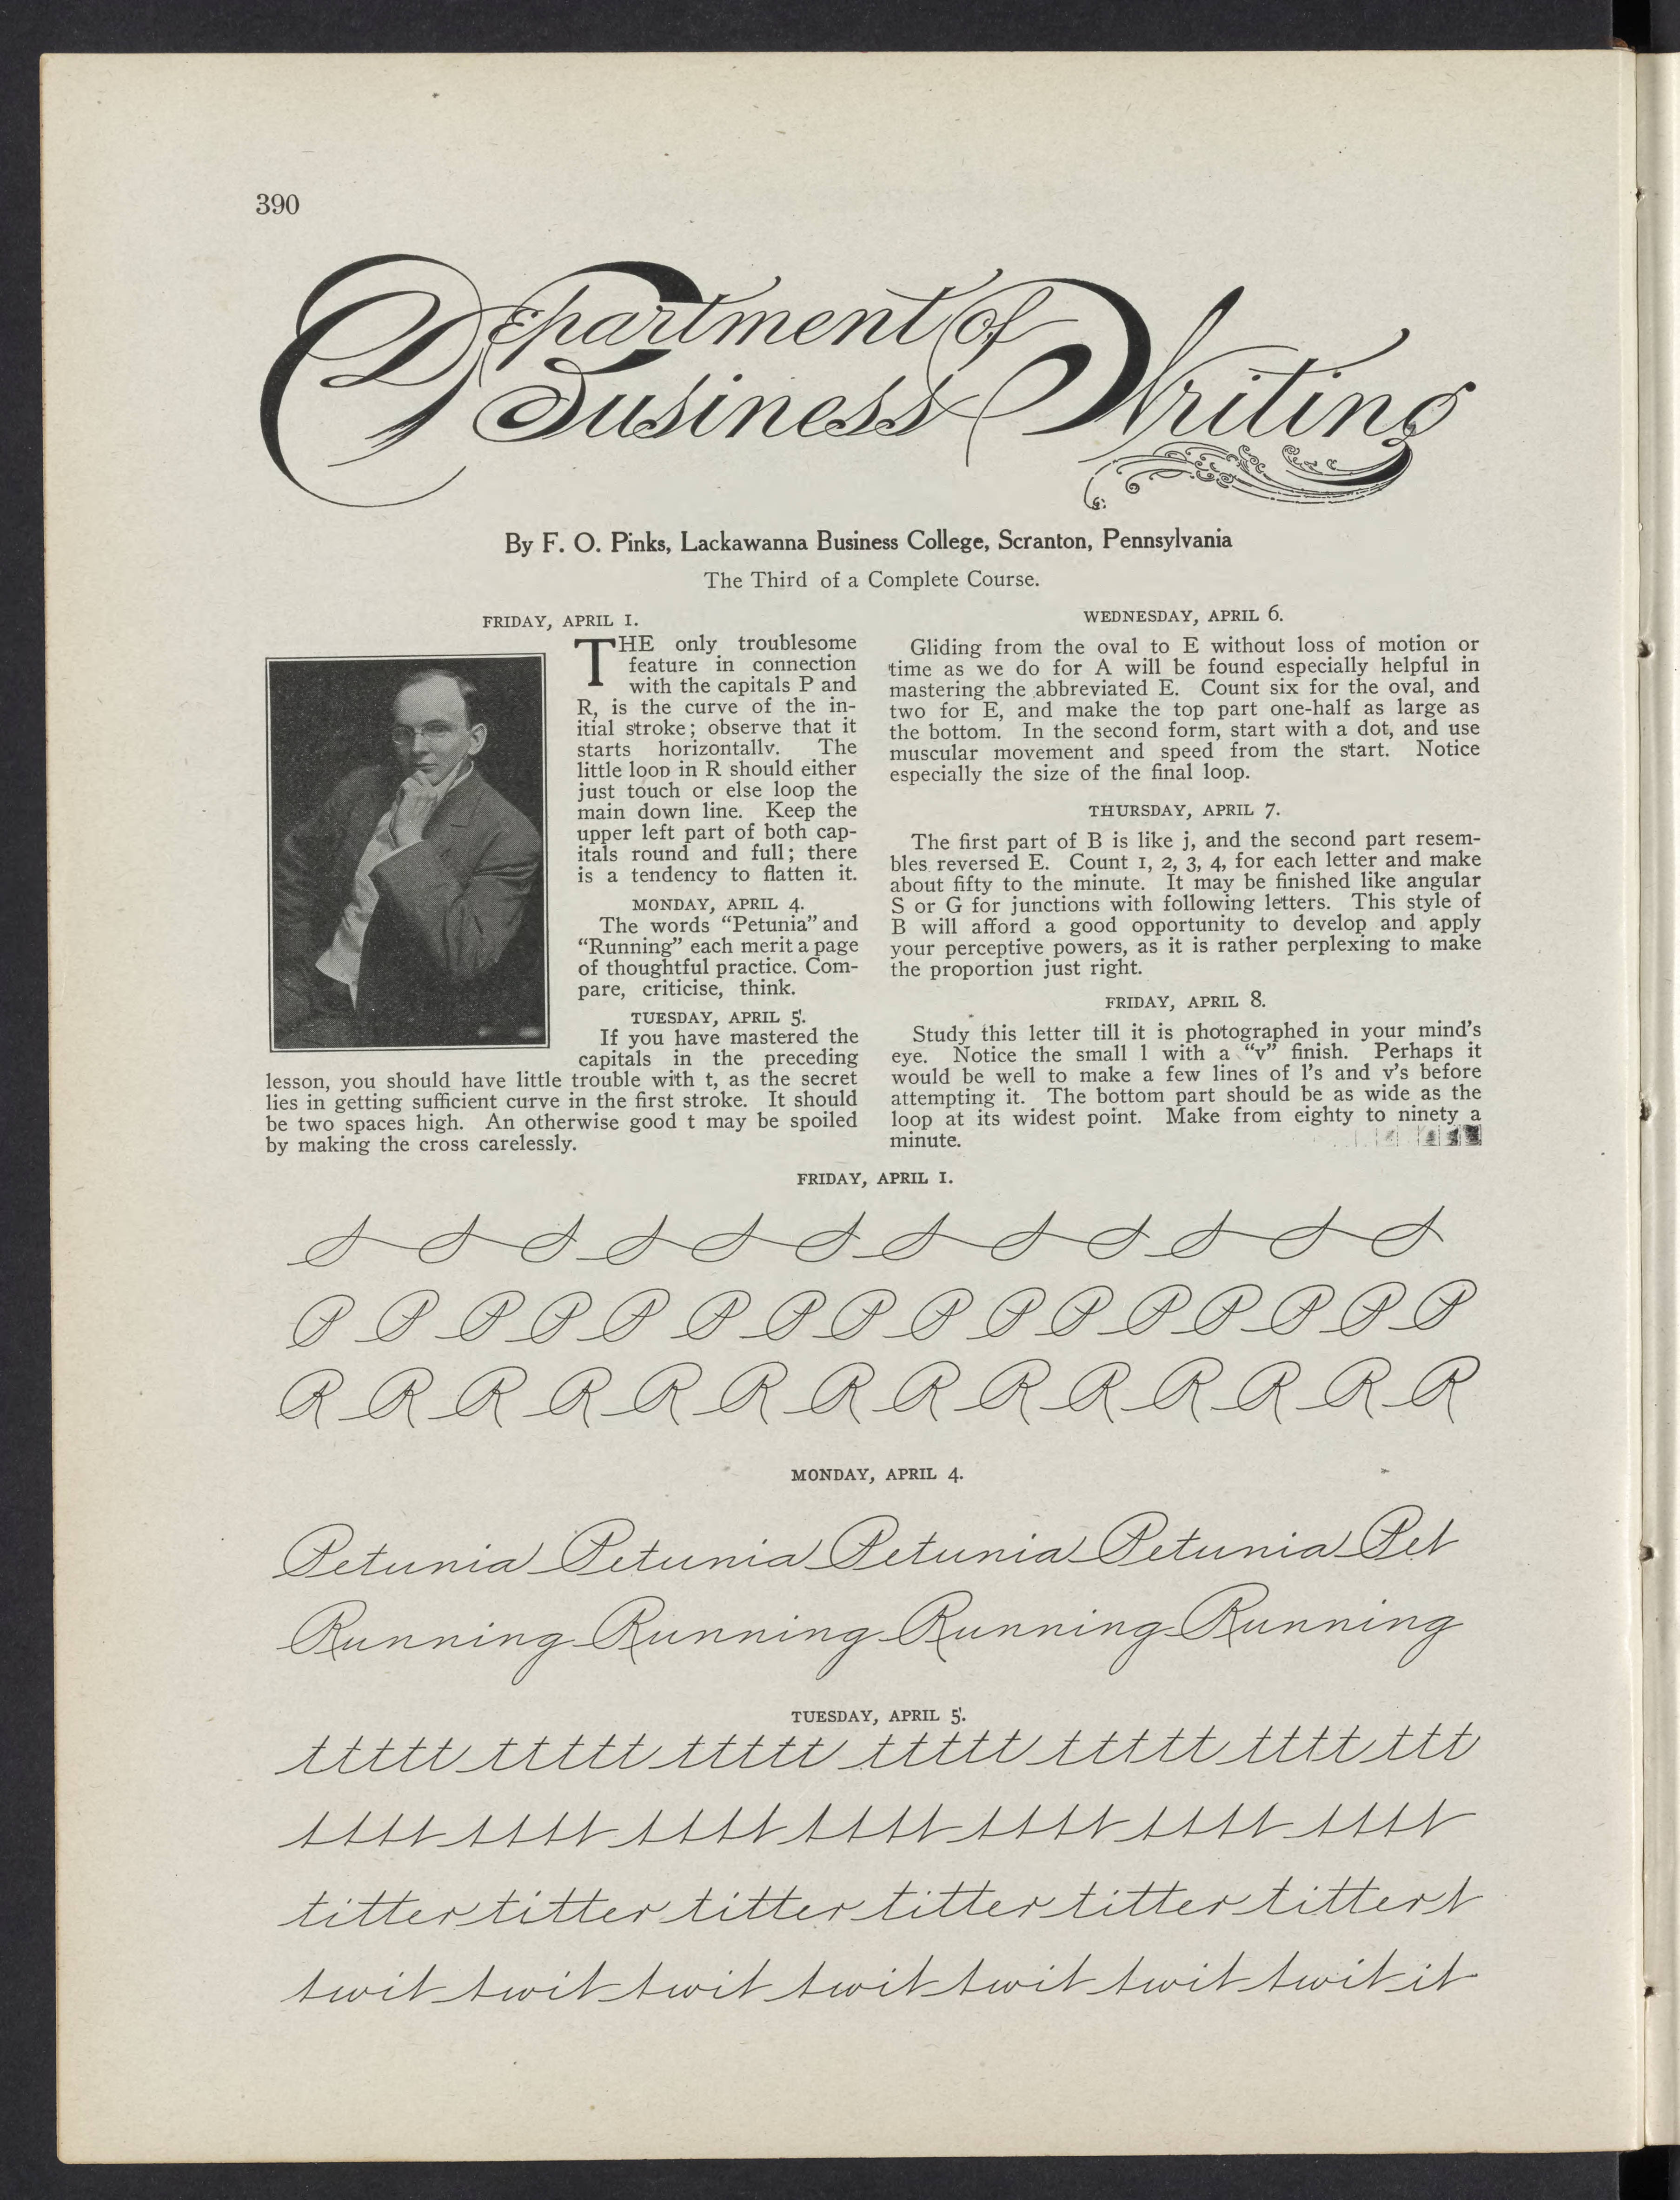 390
Department of
Business Writing
By F. O. Pinks, Lackawanna Business College, Scranton, Pennsylvania
The Third of a Complete Course.
FRIDAY, APRIL 1.
THE only troublesome
feature in connection
with the capitals P and
R, is the curve of the in-
itial stroke; observe that it
starts horizontally. The
little loop in R should either
just touch or else loop the
main down line. Keep the
upper left part of both cap-
itals round and full; there
is a tendency to flatten it.
MONDAY, APRIL 4.
The words "Petunia" and
"Running" each merit a page
of thoughtful practice. Com-
pare, criticise, think.
TUESDAY, APRIL 5.
If you have mastered the
capitals in the preceding
lesson, you should have little trouble with t, as the secret
lies in getting sufficient curve in the first stroke. It should
be two spaces high. An otherwise good t may be spoiled
by making the cross carelessly.
WEDNESDAY, APRIL 6.
Gliding from the oval to E without loss of motion or
time as we do for A will be found especially helpful in
mastering the abbreviated E. Count six for the oval, and
two for E, and make the top part one-half as large as
the bottom. In the second form, start with a dot, and use
muscular movement and speed from the start. Notice
especially the size of the final loop.
THURSDAY, APRIL 7.
The first part of B is like j, and the second part resem-
bles reversed E. Count 1, 2, 3, 4, for each letter and make
about fifty to the minute. It may be finished like angular
S or G for junctions with following letters. This style of
B will afford a good opportunity to develop and apply
your perceptive powers, as it is rather perplexing to make
the proportion just right.
FRIDAY, APRIL 8.
Study this letter till it is photographed in your mind's
eye. Notice the small l with a "v" finish. Perhaps it
would be well to make a few lines of l's and v's before
attempting it. The bottom part should be as wide as the
loop at its widest point. Make from eighty to ninety a
minute.
FRIDAY, APRIL 1.
P P P P P P P P P P P P P P P P
R R R R R R R R R R R R R R
MONDAY, APRIL 4.
Petunia Petunia Petunia Petunia Pet
Running Running Running Running
TUESDAY, APRIL 5.
ttttt ttttt ttttt ttttt ttttt tttt ttt
tttt tttt tttt tttt tttt tttt tttt
titter titter titter titter titter titter t
twit twit twit twit twit twit twit it